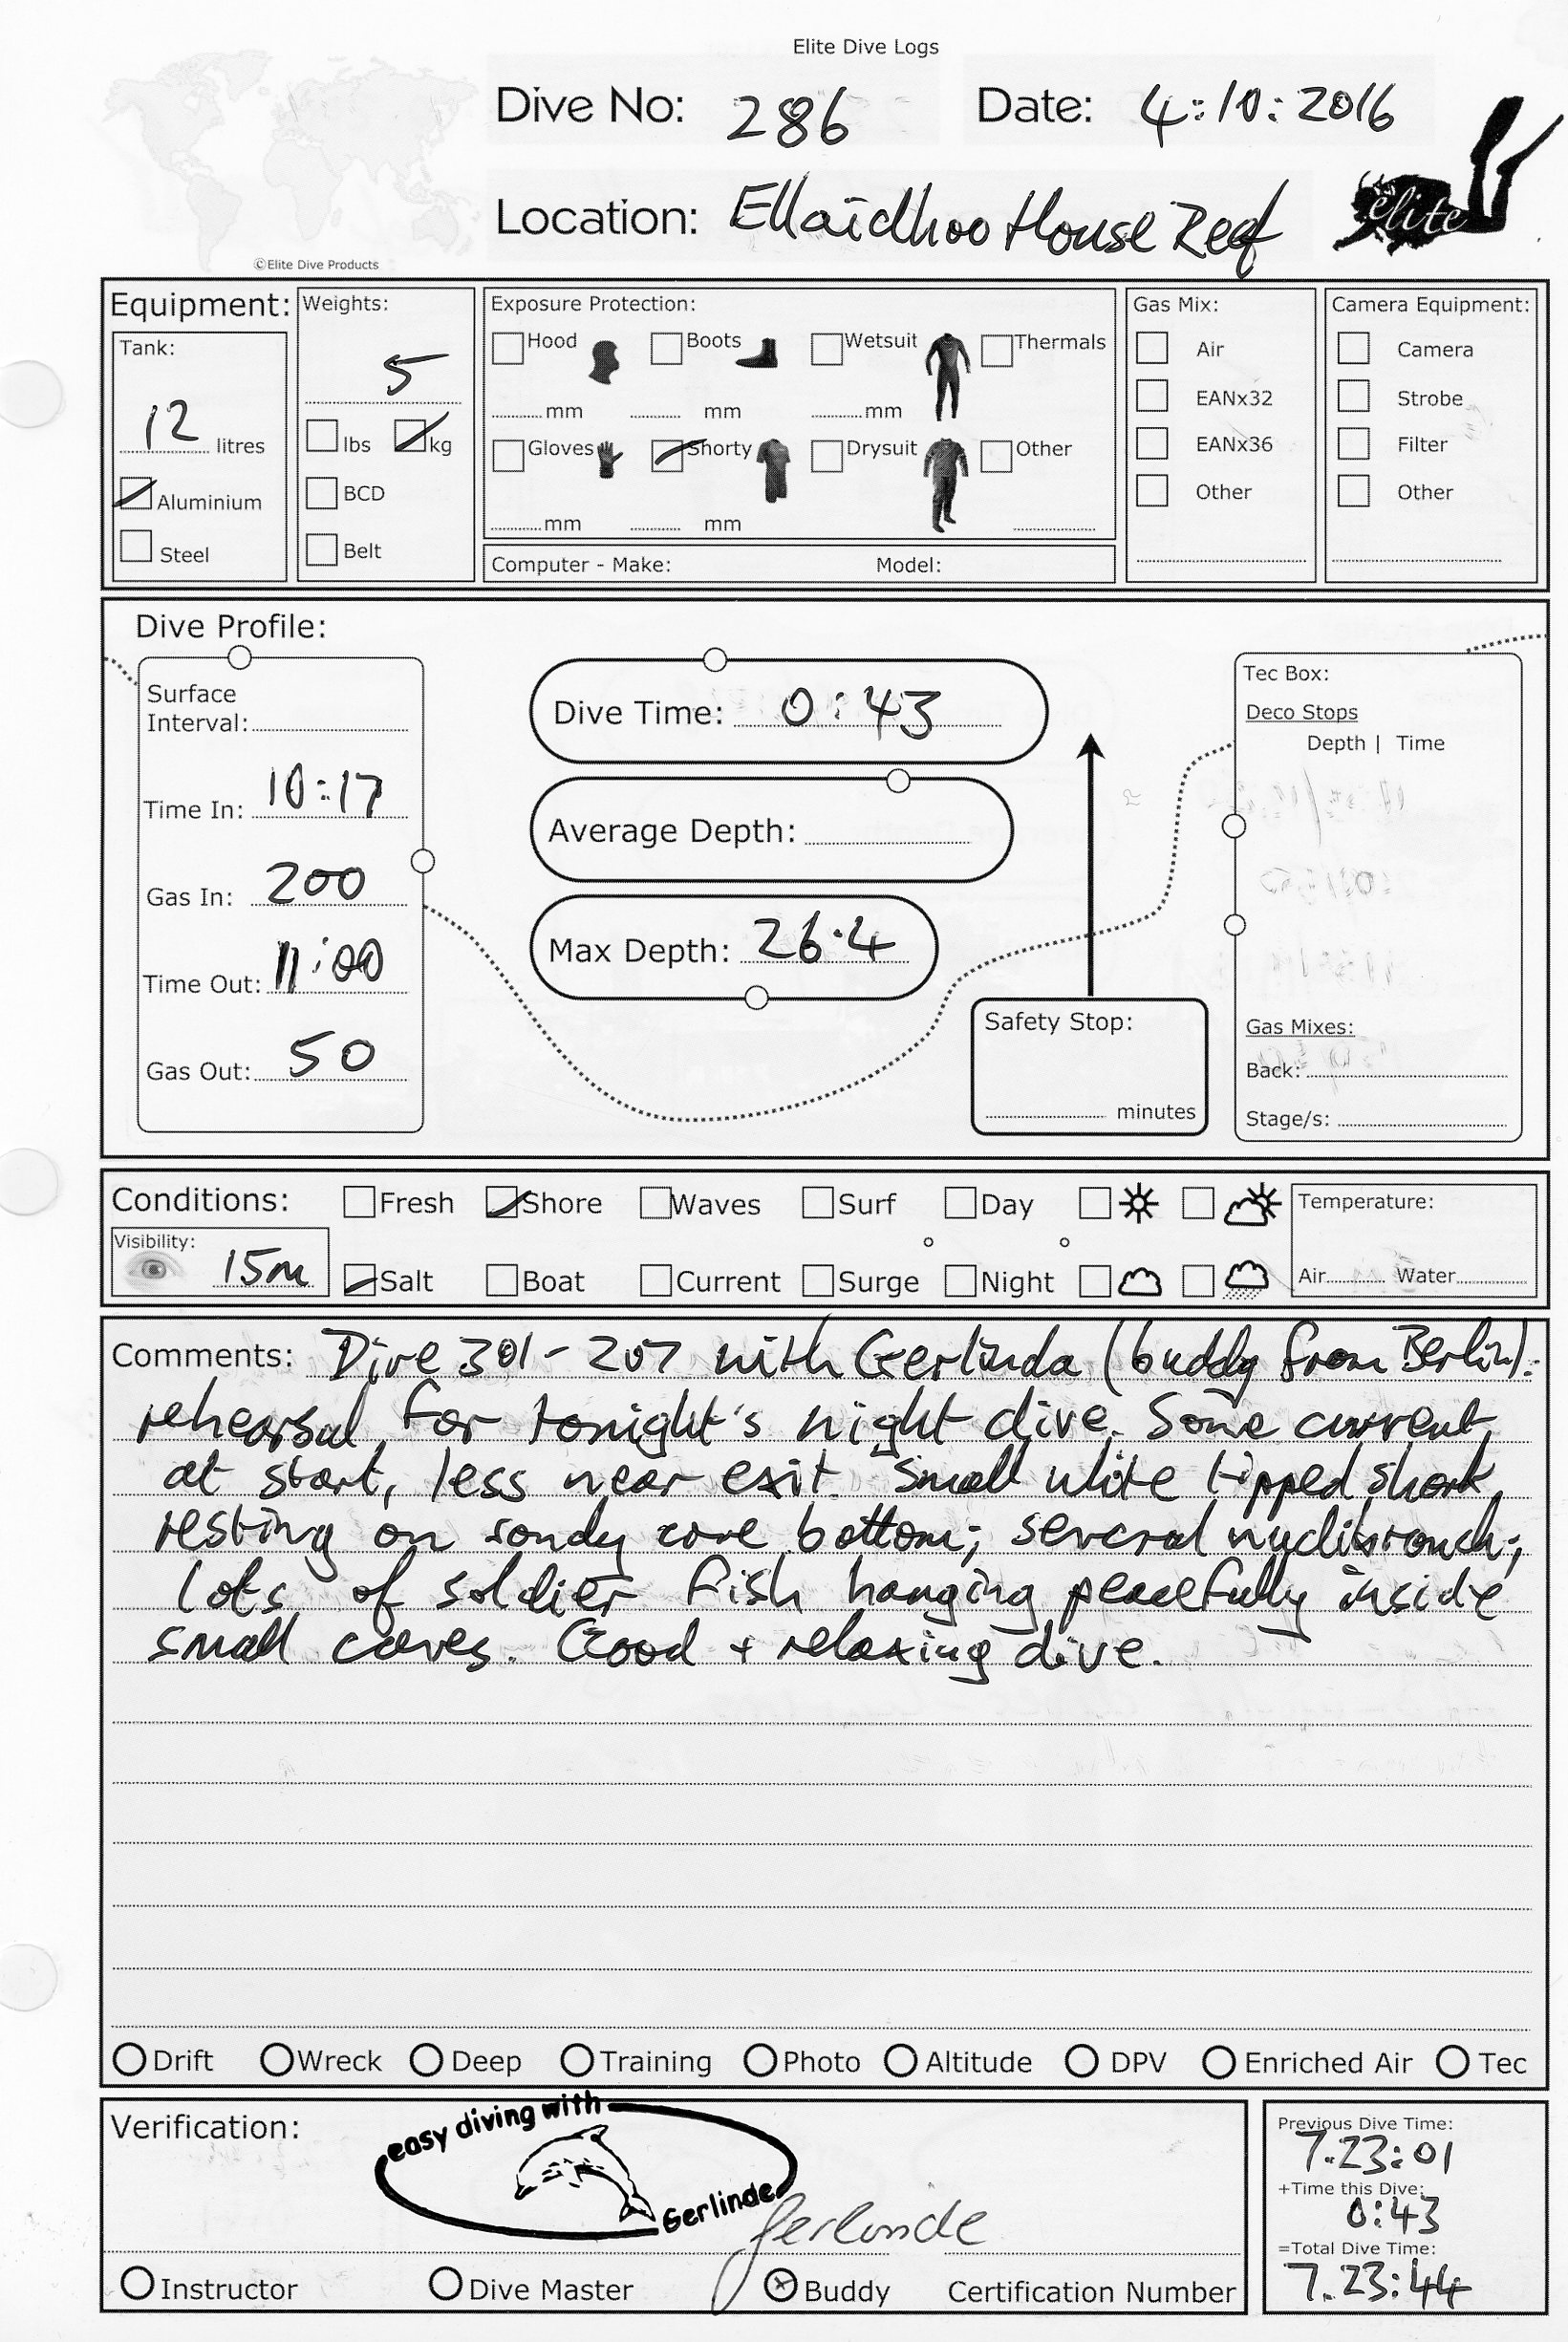 Elite Dive Logs
Dive No: 286 Date: 4:10:2016
Location: Ellaidhoo House Reef
elite
©Elite Dive Products
Equipment: Weights: Exposure Protection: Gas Mix: Camera Equipment:
Tank: 5 Hood Boots Wetsuit Thermals Air Camera
12 litres mm mm mm EANx32 Strobe
lbs kg Gloves Shorty Drysuit Other EANx36 Filter
Aluminium BCD Other Other
Steel Belt mm mm
Computer - Make: Model:
Dive Profile:
Surface
Interval:
Time In: 10:17
Gas In: 200
Time Out: 11:00
Gas Out: 50
Dive Time: 0:43
Average Depth:
Max Depth: 26.4
Safety Stop:
minutes
Tec Box:
Deco Stops
Depth | Time
Gas Mixes:
Back:
Stage/s:
Conditions: Fresh Shore Waves Surf Day Temperature:
Visibility: 15m Salt Boat Current Surge Night Air Water
Comments: Dive 301-207 with Gerlinda (buddy from Berlin):
rehearsal for tonight's night dive. Some current
at start, less near exit. Small white tipped shark
resting on sandy cave bottom; several
lots of soldier fish hanging peacefully inside
small caves. Good + relaxing dive.
Drift Wreck Deep Training Photo Altitude DPV Enriched Air Tec
Verification:
easy diving with
Gerlinde
Gerlinde
Instructor Dive Master Buddy Certification Number
Previous Dive Time:
7.23:01
+Time this Dive:
0:43
=Total Dive Time:
7.23:44